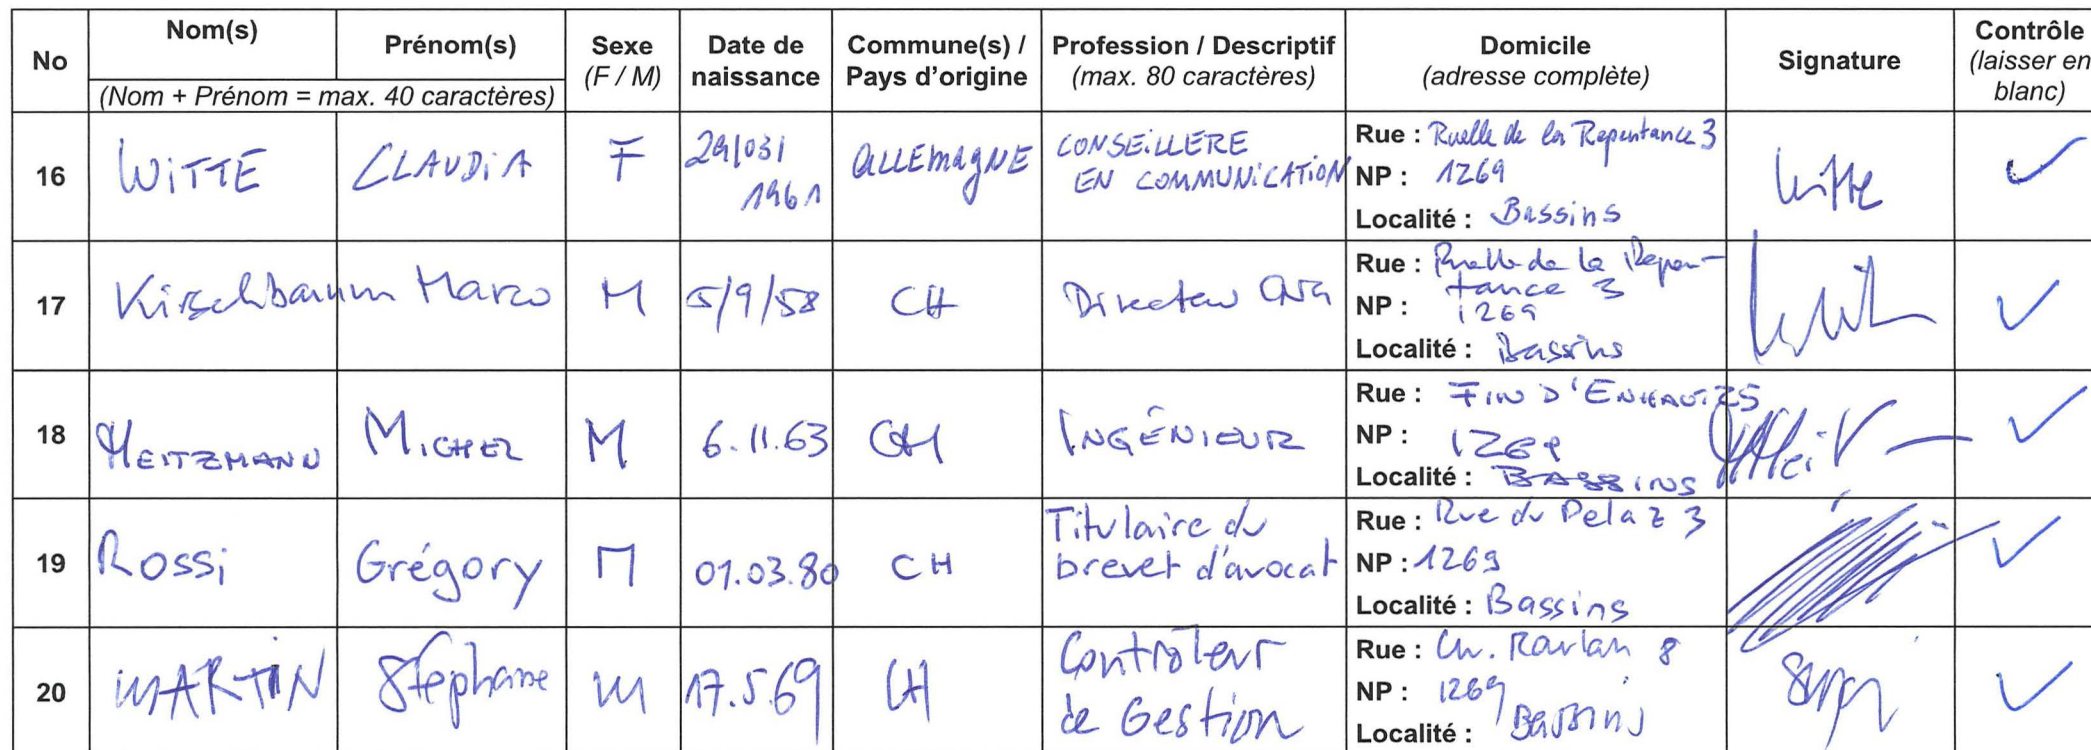 No
Nom(s)
Prénom(s)
(Nom + Prénom = max. 40 caractères)
Sexe
(F / M)
Date de
naissance
Commune(s) /
Pays d'origine
Profession / Descriptif
(max. 80 caractères)
Domicile
(adresse complète)
Signature
Contrôle
(laisser en
blanc)
16
WITTE
CLAUDIA
F
29/03/
1961
ALLEMAGNE
CONSEILLERE
EN COMMUNICATION
Rue : Ruelle de la Repentance 3
NP : 1269
Localité : Bassins
Witte
17
Kirschbaum Marco
M
5/9/58
CH
Directeur
Rue : Ruelle de la Repen-
tance 3
NP : 1269
Localité : Bassins
18
HEITZMANN
MICHEL
M
6.11.63
CH
INGÉNIEUR
Rue : FIN D'ENHAUT 25
NP : 1269
Localité : BASSINS
19
Rossi
Grégory
M
01.03.80
CH
Titulaire du
brevet d'avocat
Rue : Rue du Pelaz 3
NP : 1269
Localité : Bassins
20
MARTIN
Stéphane
M
17.5.69
CH
Contrôleur
de Gestion
Rue : Ch. 8
NP : 1269
Localité : Bassins